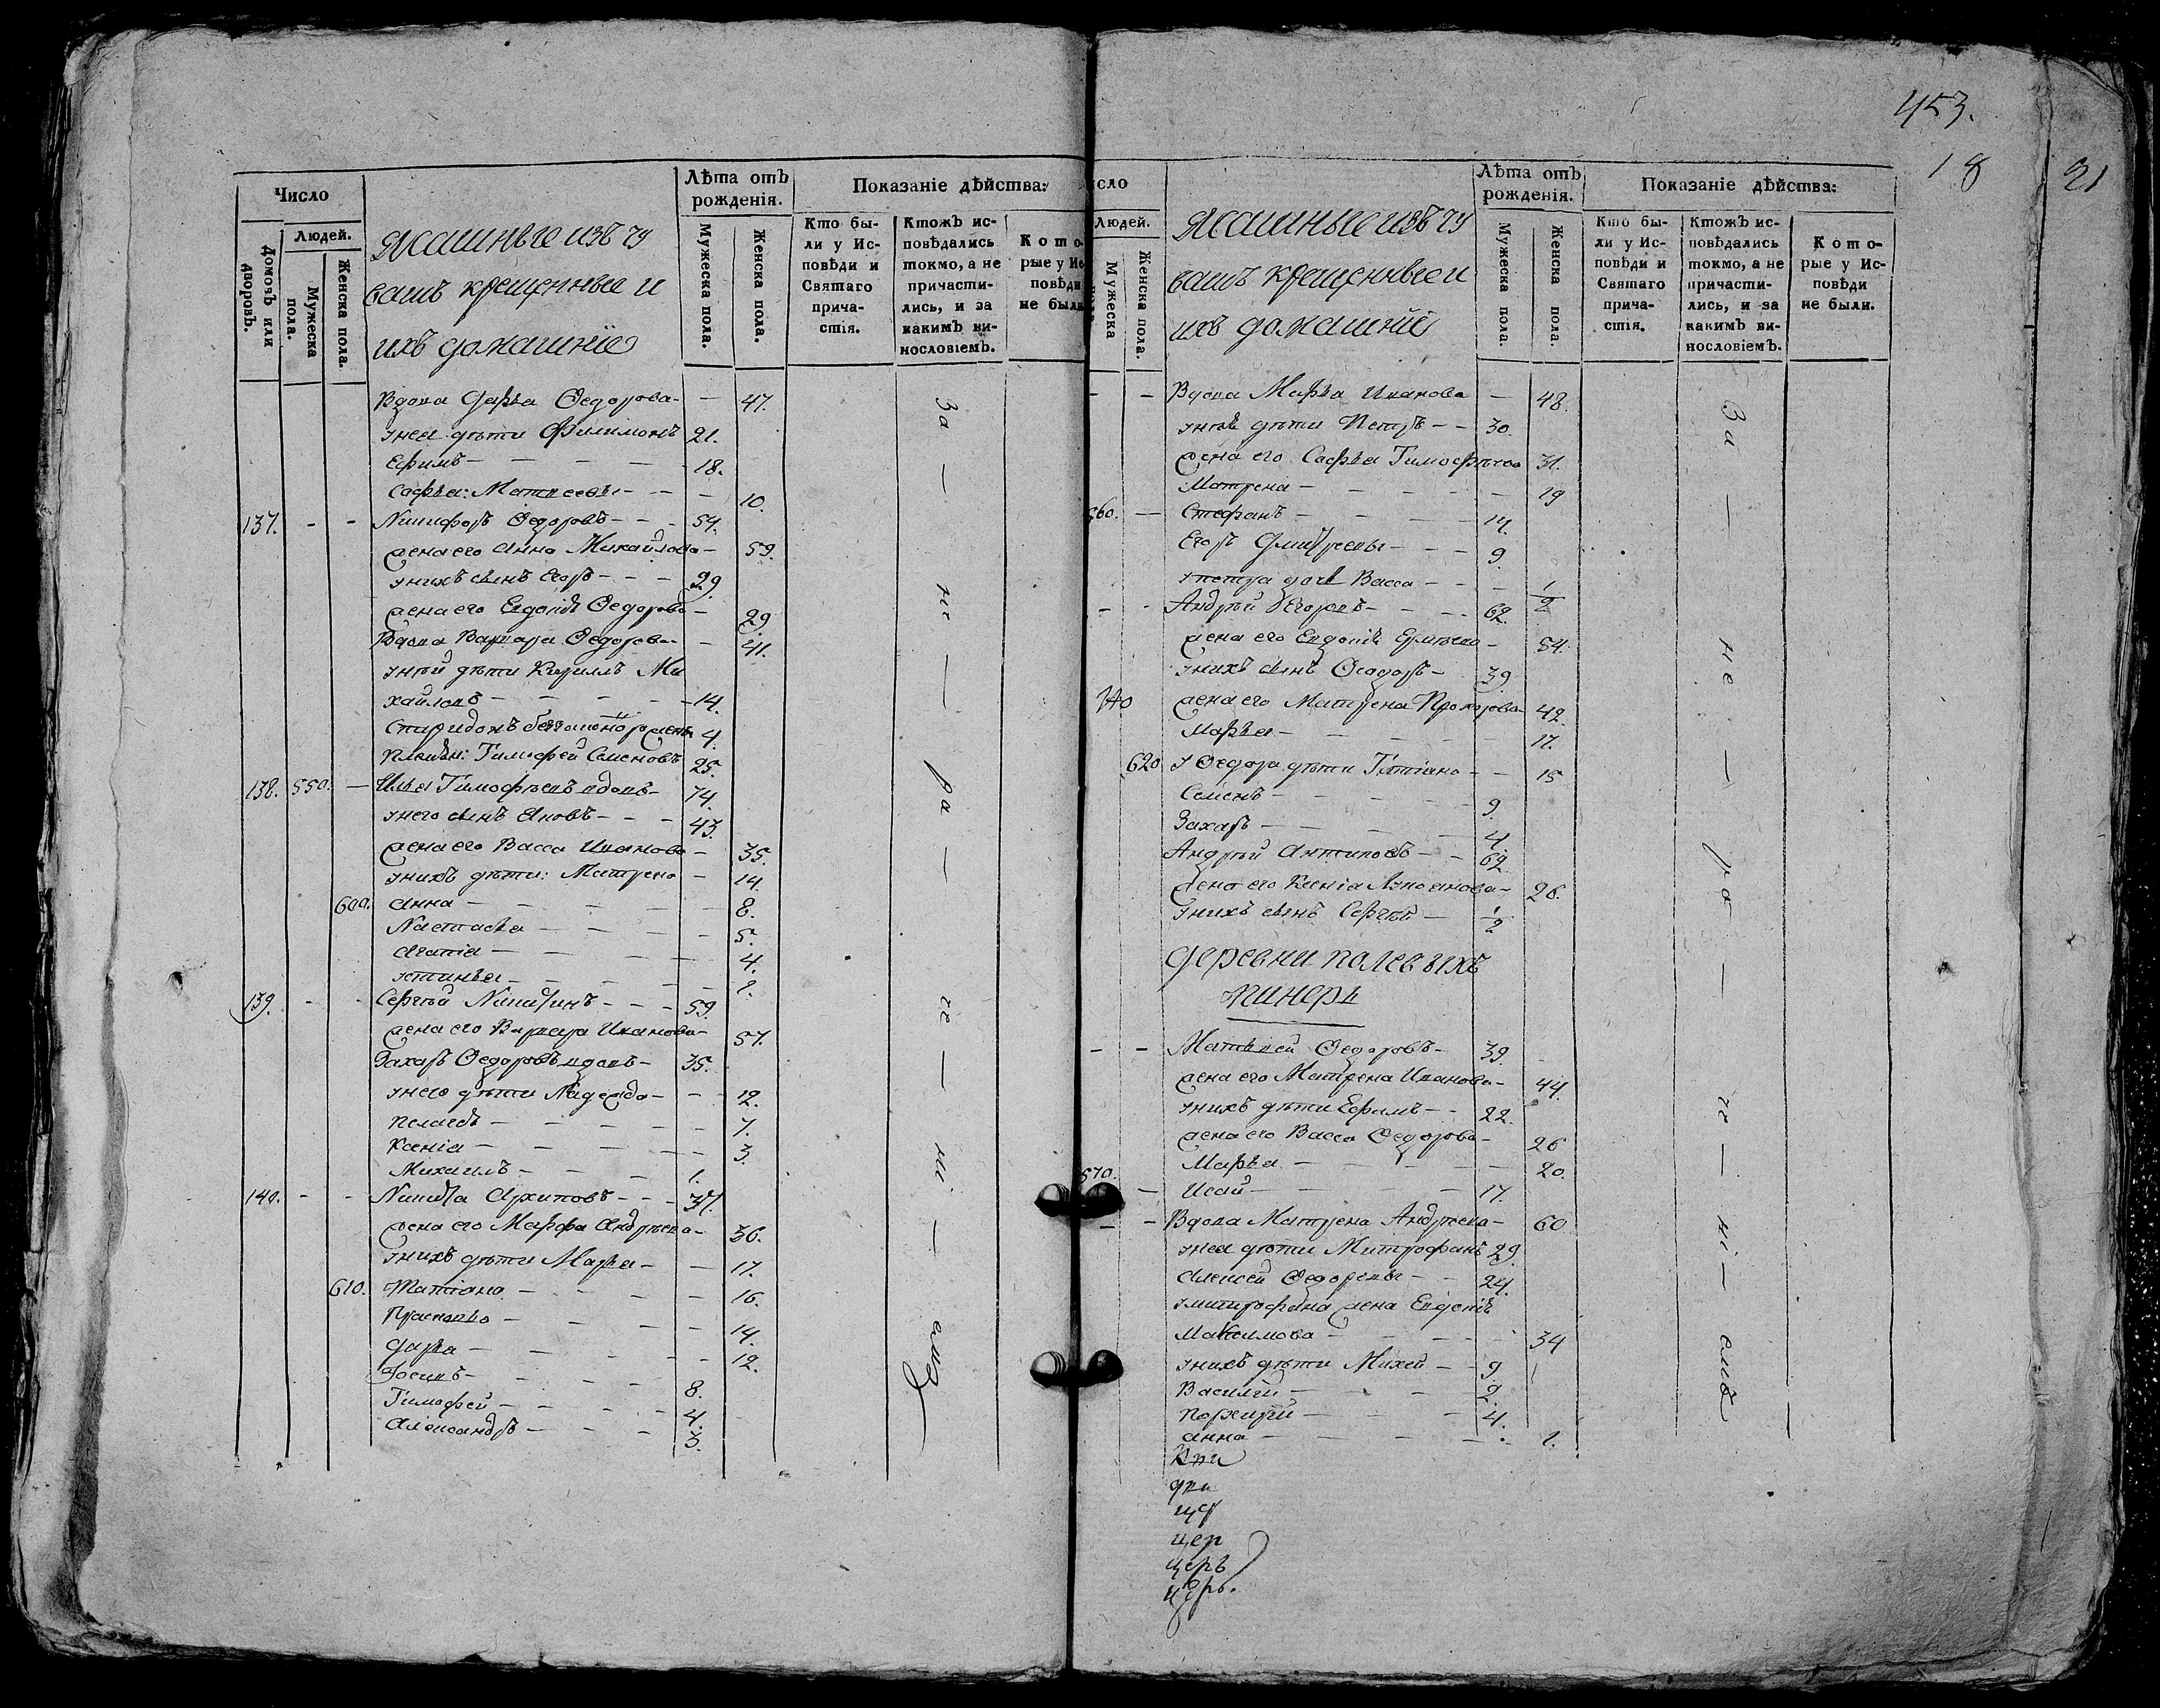 Число
Людей.
Домовъ или дворовъ.
Мужеска пола.
Женска пола.
Ясашные изъ чу
вашъ крещенные и
ихъ домашніе
Лѣта отъ рожденія.
Мужеска пола.
Женска пола.
Показаніе дѣйства:
Кто бы-
ли у Ис-
повѣди и
Святаго
прича-
стія.
Ктожъ ис-
повѣдались
токмо, а не
причасти-
лись, и за
какимъ ви-
нословіемъ.
Кото-
рые у Ис
повѣди
не был
Вдова Дарья Ѳедорова - - 47.
у нея дѣти Филимонъ 21.
Ефимъ - - - - 18.
Софья: Матвеевы - - - 10.
137. - - Никифоръ Ѳедоровъ - - - 59.
жена его Анна Михайлова - 59.
у нихъ сынъ Егоръ - - - 29.
жена его Евдокія Ѳедорова - 29.
Вдова Варвара Ѳедорова - - 41.
у ней дѣти Кирилъ Ми
хайловъ - - - - - 14.
Спиридонъ 4.
племян: Тимофей Семеновъ 25.
138. 550. - Илья Тимофѣевъ вдовъ - 74.
у него сынъ Яковъ - - - 43.
жена его Васса Иванова - 35.
у нихъ дѣти: Матрена - 14.
600. Анна - - - - - - 8.
Настасья - - - - 5.
Агапіа - - - - - 4.
Устинья - - - - - 1.
139. - - Сергѣй Никитинъ - - - 59.
жена его Варвара Иванова - 57.
Захаръ Ѳедоровъ вдовъ - 35.
у него дѣти Надежда - - - 12.
Пелагея - - - - - 7.
Ксеніа - - - - - 3.
Михаилъ - - - - 1.
140. - - Никита Архиповъ - - - 37.
жена его Марфа Андрѣева - 36.
у нихъ дѣти Марья - - 17.
610. Татіана - - - - - 16.
Прасковья - - - - 14.
Дарья - - - - - 12.
Іосивъ - - - - - 8.
Тимофей - - - - - 4.
Александръ - - - - 3.
За - не - ра - че - ні - емъ
453.
18
21
сло
Людей.
Мужеска
Женска пола.
Ясашные изъ чу
вашъ крещенные и
ихъ домашніе
Лѣта отъ рожденія.
Мужеска пола.
Женска пола.
Показаніе дѣйства:
Кто бы-
ли у Ис-
повѣди и
Святаго
прича-
стія.
Ктожъ ис-
повѣдались
токмо, а не
причасти-
лись, и за
какимъ ви-
нословіемъ.
Кото-
рые у Ис-
повѣди
не были.
- - Вдова Марья Иванова - 48.
у ней дѣти Петръ - - 30.
жена его Софья Тимофѣева 31.
Матрена - - - - - - 19
560. - Стефанъ - - - - 14.
Егоръ Дмитреевы - - - 9.
у Петра дочь Васса - - - 1/2
- - Андрѣй Егоровъ - - - - 62.
жена его Евдокія - 54.
у нихъ сынъ Ѳеодоръ - 39.
140 жена его Матрена Прохорова - 42.
Марья - - - - - 17.
620 у Ѳедора дѣти Татіана - - 15
Семенъ - - - - - 9.
Захаръ - - - - - 4.
Андрѣй Антиповъ - - 62.
жена его Ксеніа - 26.
у нихъ сынъ Сергѣй - 1/2
Деревни полевыхъ
пинеръ
- - Матвей Ѳедоровъ - 39.
жена его Матрена Иванова - 44.
у нихъ дѣти Ефимъ - - 22.
жена его Васса Ѳедорова - 26
Марья - - - - - 20.
570. - Исай - - - - 17.
- - Вдова Матрена Андреева - 60
у нея дѣти Митрофанъ 29.
Алексей Ѳедоровы - - 24.
у Митрофана жена Евдокія
Максимова - - - - 34
у нихъ дѣти Михей - - 9.
Василѣй - - - 2.
Порфирѣй - - - 4.
Анна - - - - - 1.
За - не - ра - че - ні - емъ